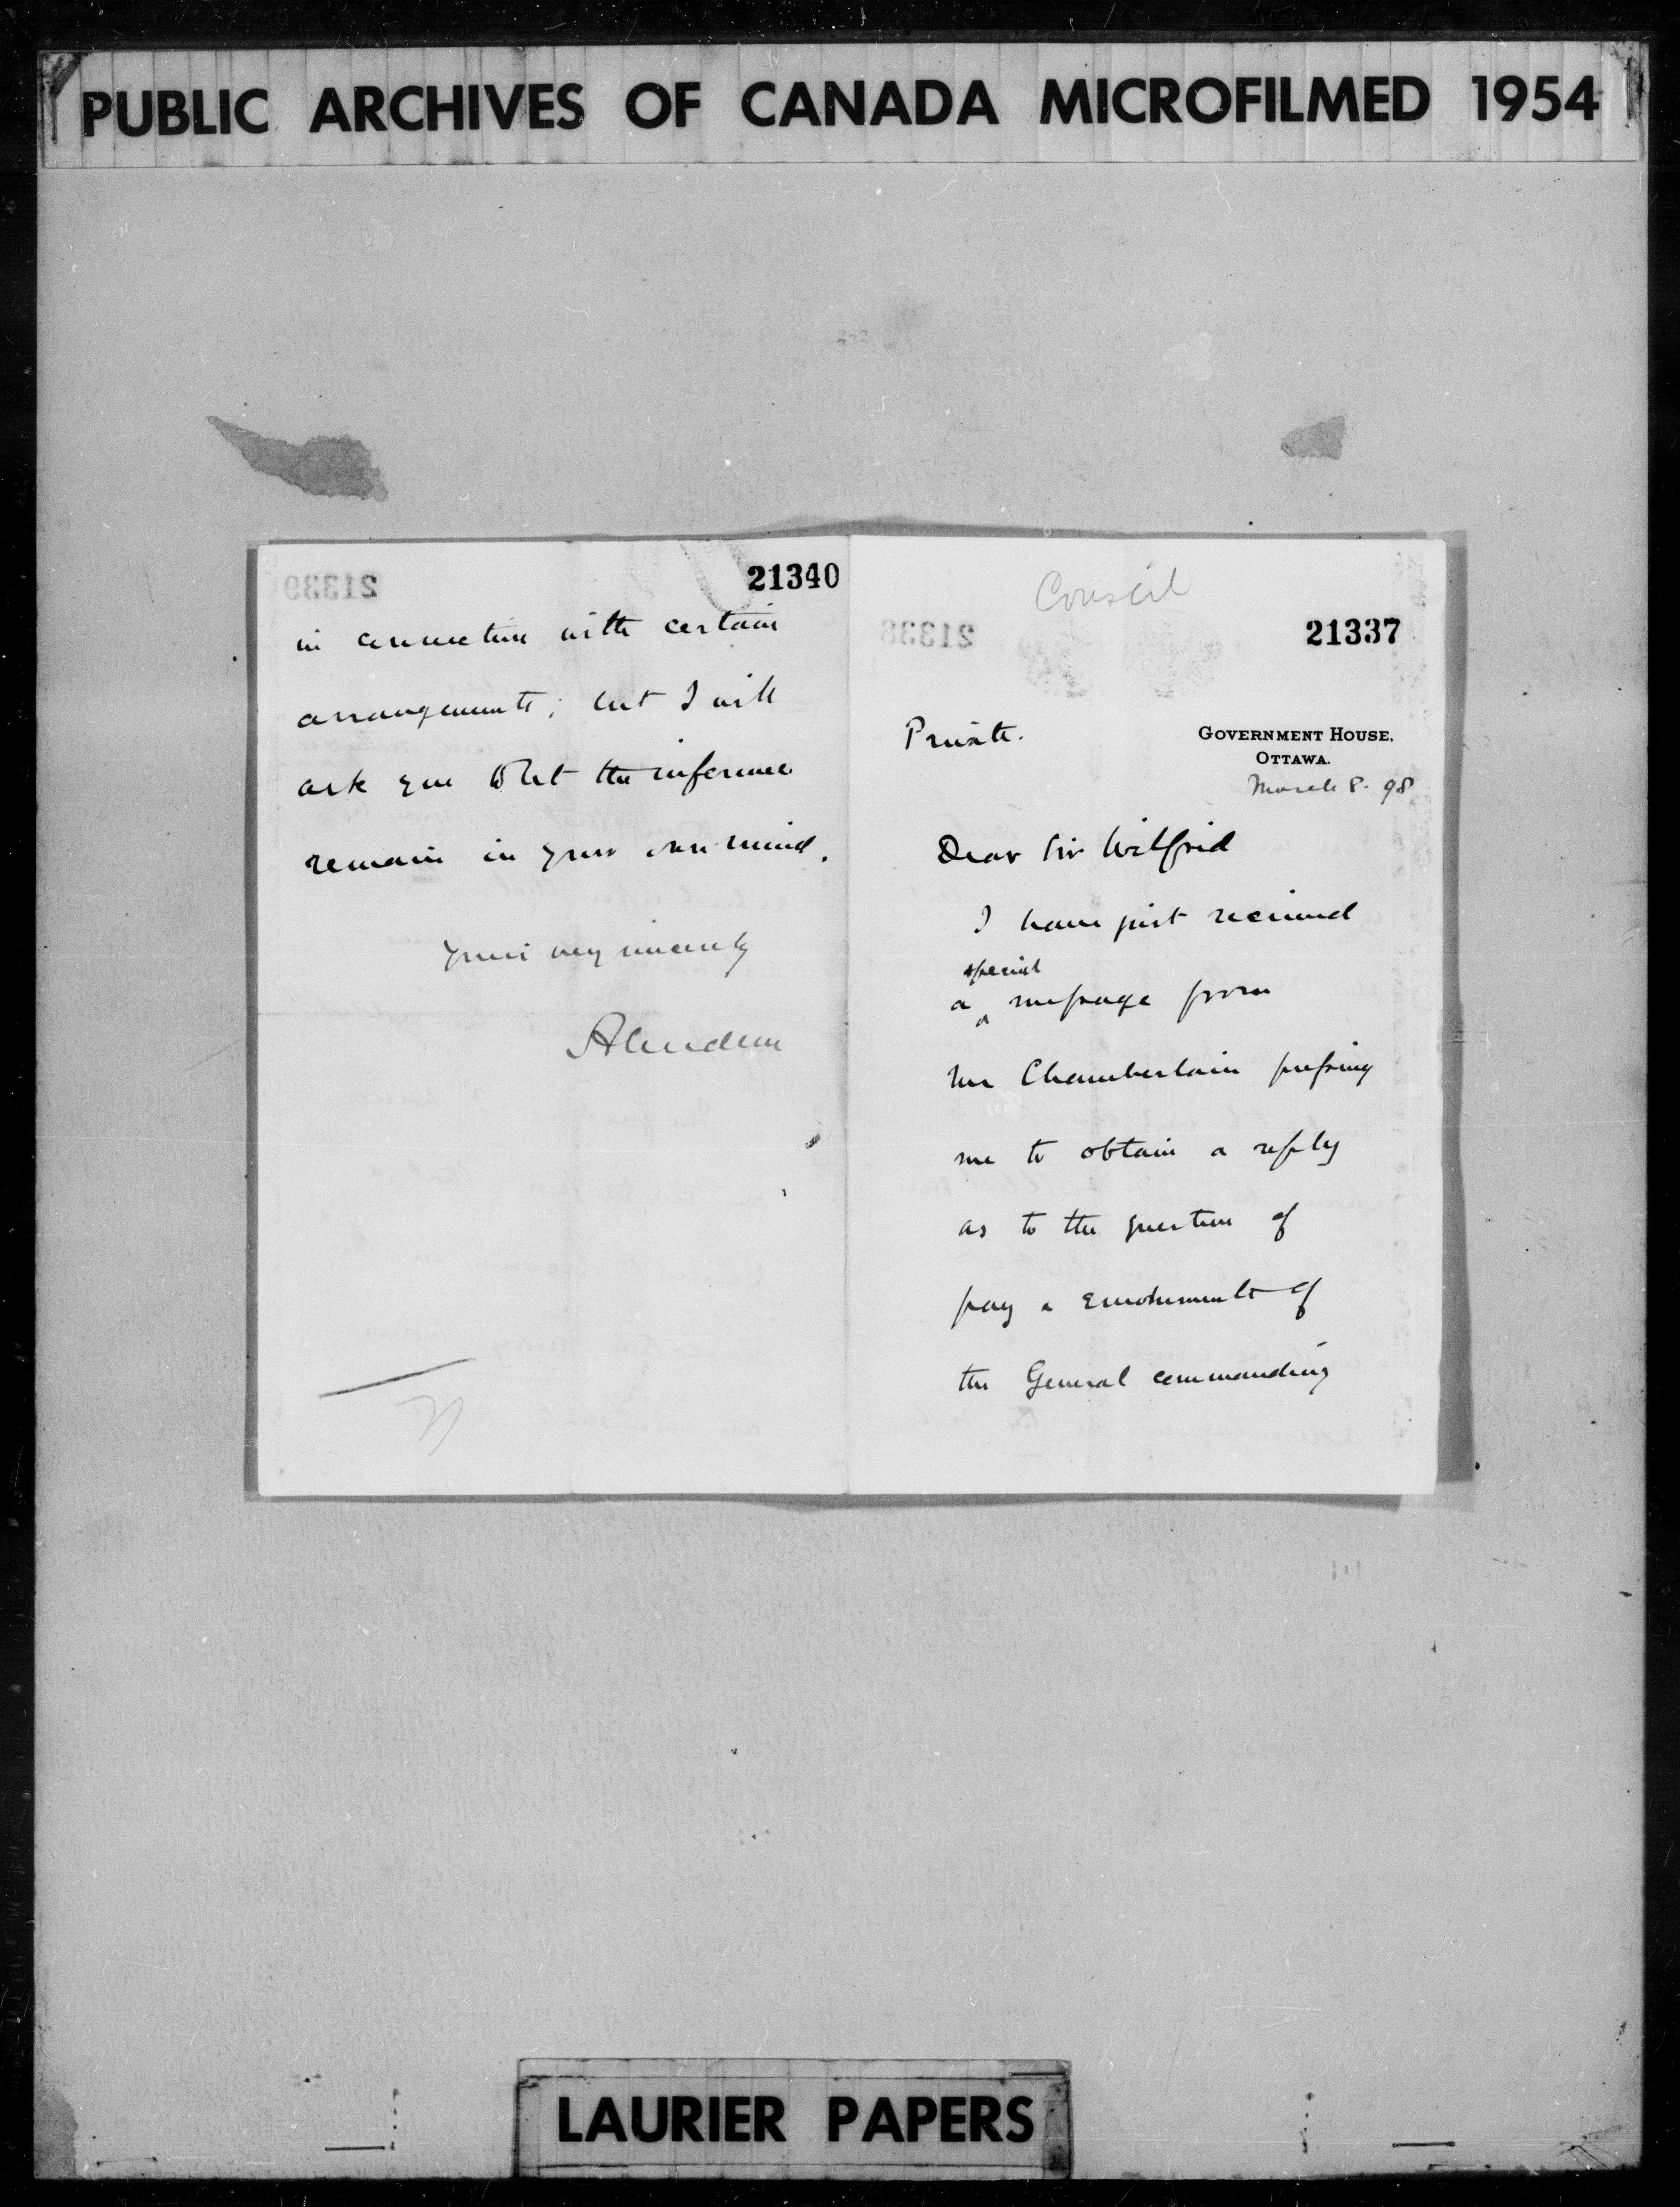 PUBLIC ARCHIVES OF CANADA MICROFILMED 1954
21340
in connection with certain
arrangements; but I will
ask you to let the inference
remain in your own mind.
Yours very sincerely
Aberdeen
Conseil
21337
Private.
GOVERNMENT HOUSE,
OTTAWA.
March 8. 98
Dear Sir Wilfrid
I have just received
special
a ^ message from
Mr Chamberlain pressing
me to obtain a reply
as to the question of
pay & emoluments of
the General commanding
LAURIER PAPERS